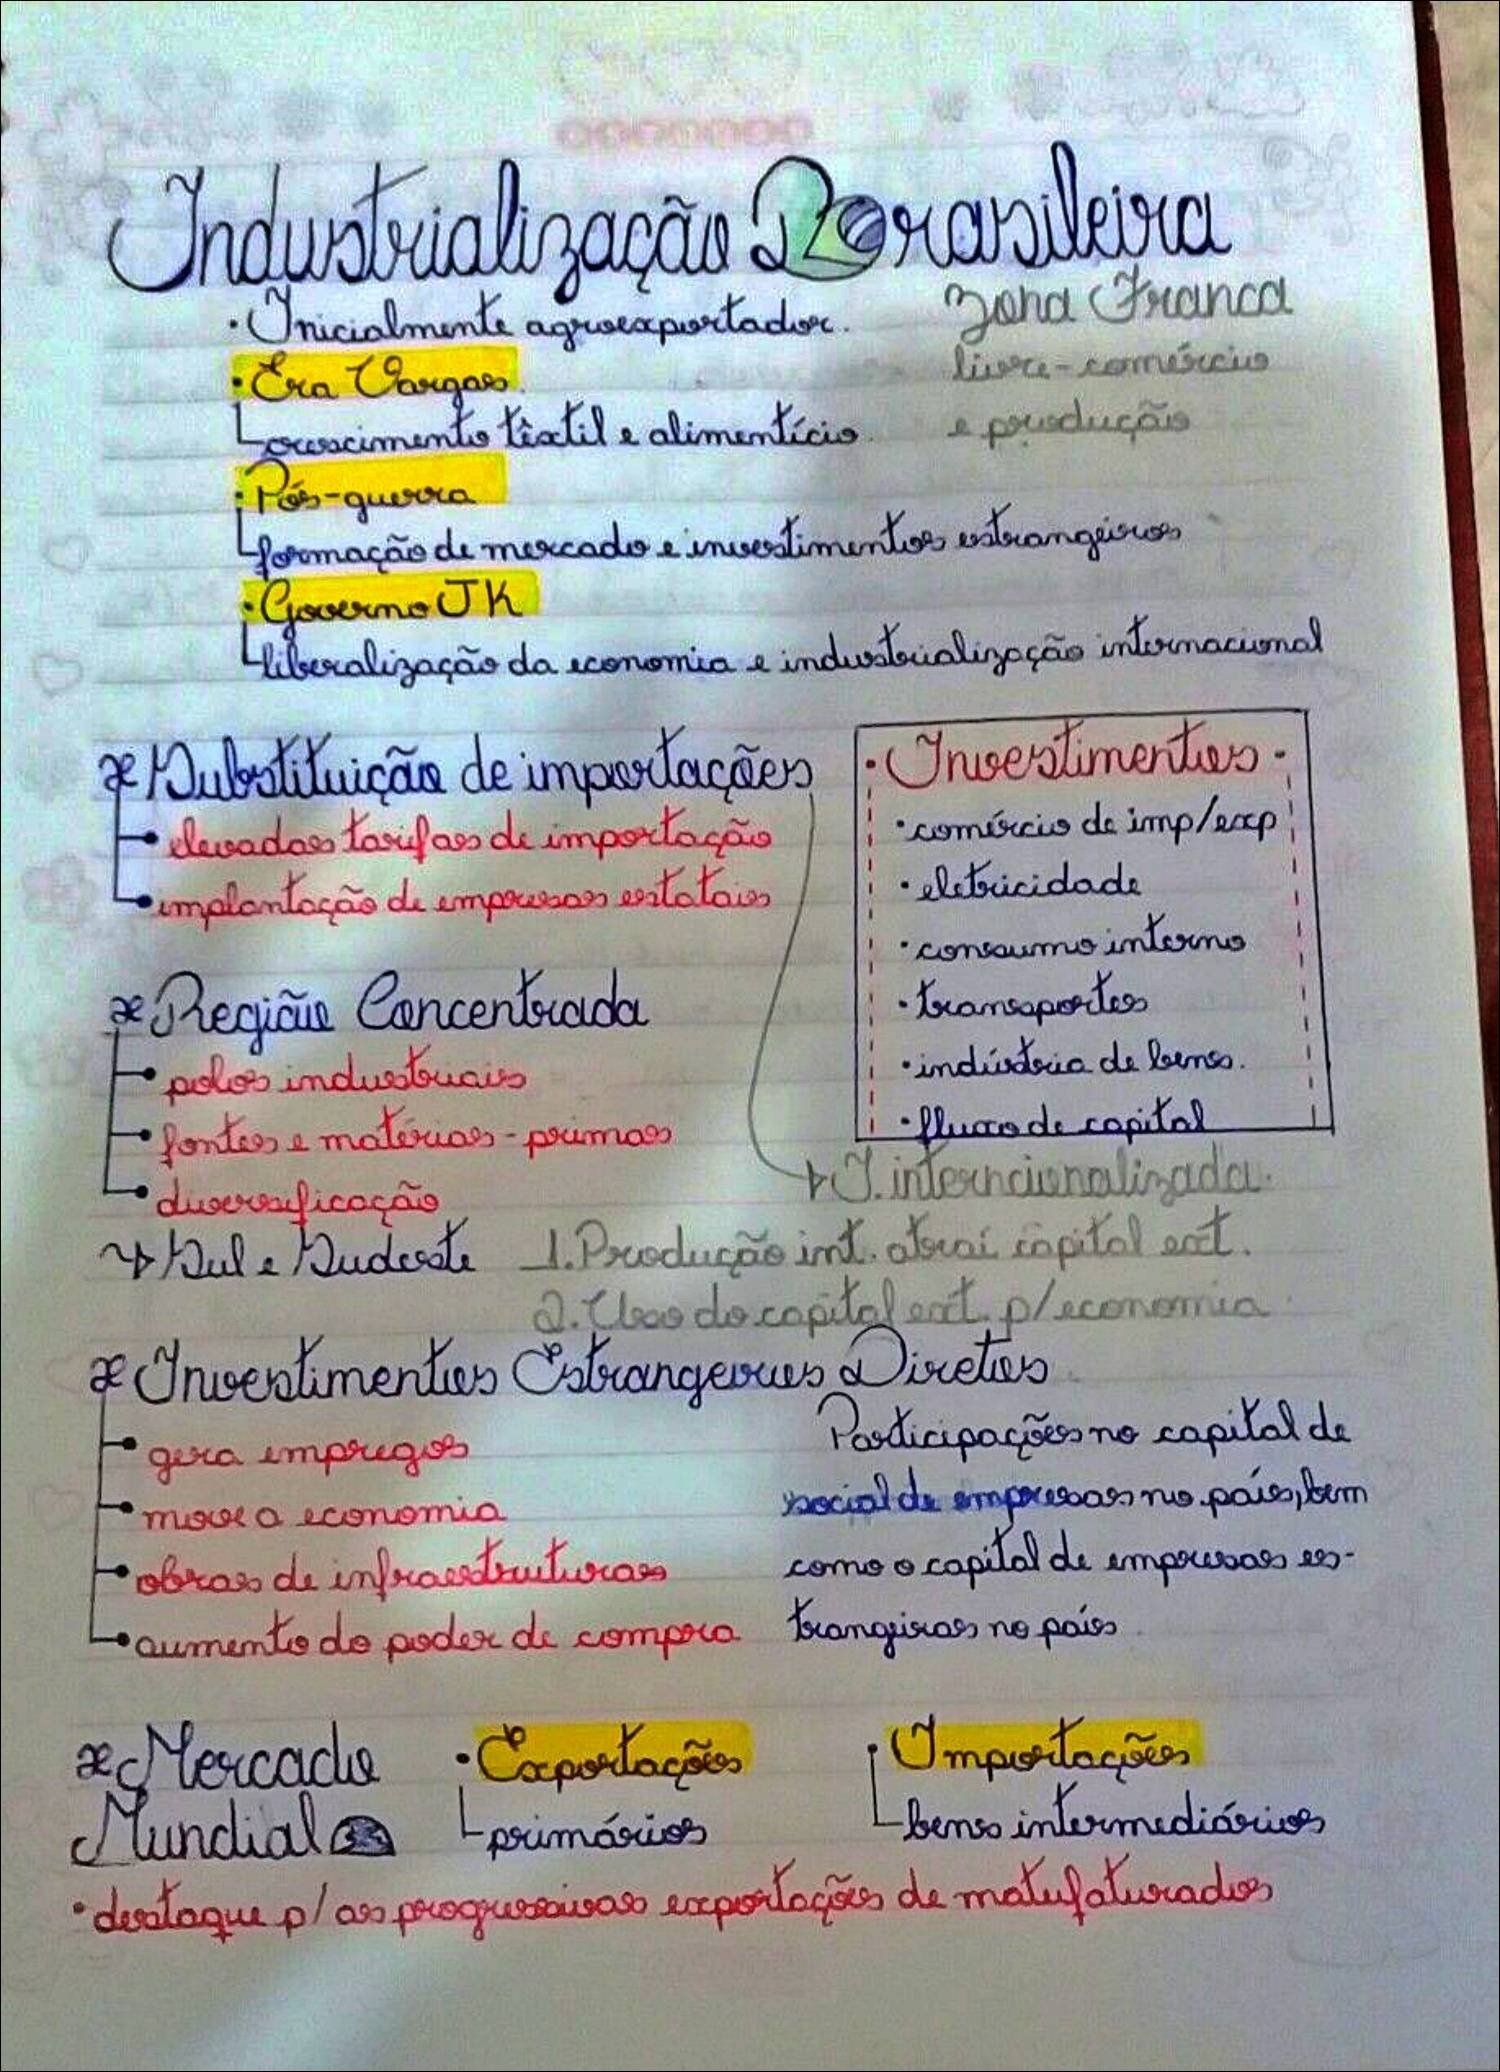 Industrialização Brasileira
• Inicialmente agroexportador.
Zona Franca
livre-comércio
e produção
• Era Vargas
crescimento têxtil e alimentício
• Pós-guerra
formação de mercado e investimentos estrangeiros
• Governo JK
liberalização da economia e industrialização internacional
Substituição de importações
elevadas tarifas de importação
implantação de empresas estatais
• Investimentos •
• comércio de imp/exp
• eletricidade
• consumo interno
• transportes
• indústria de bens.
• fluxo de capital
Região Concentrada
polos industriais
fontes e matérias-primas
diversificação
Sul e Sudeste
I. interncionalizada.
1. Produção int. atraí capital ext.
2. Uso do capital ext. p/ economia
Investimentos Estrangeiros Diretos
gera empregos
move a economia
obras de infraestruturas
aumento do poder de compra
Participações no capital de
social de empresas no país, bem
como o capital de empresas es-
trangeiras no país
Mercado
Mundial
• Exportações
primários
• Importações
bens intermediários
• destaque p/ as progressivas exportações de matufaturados